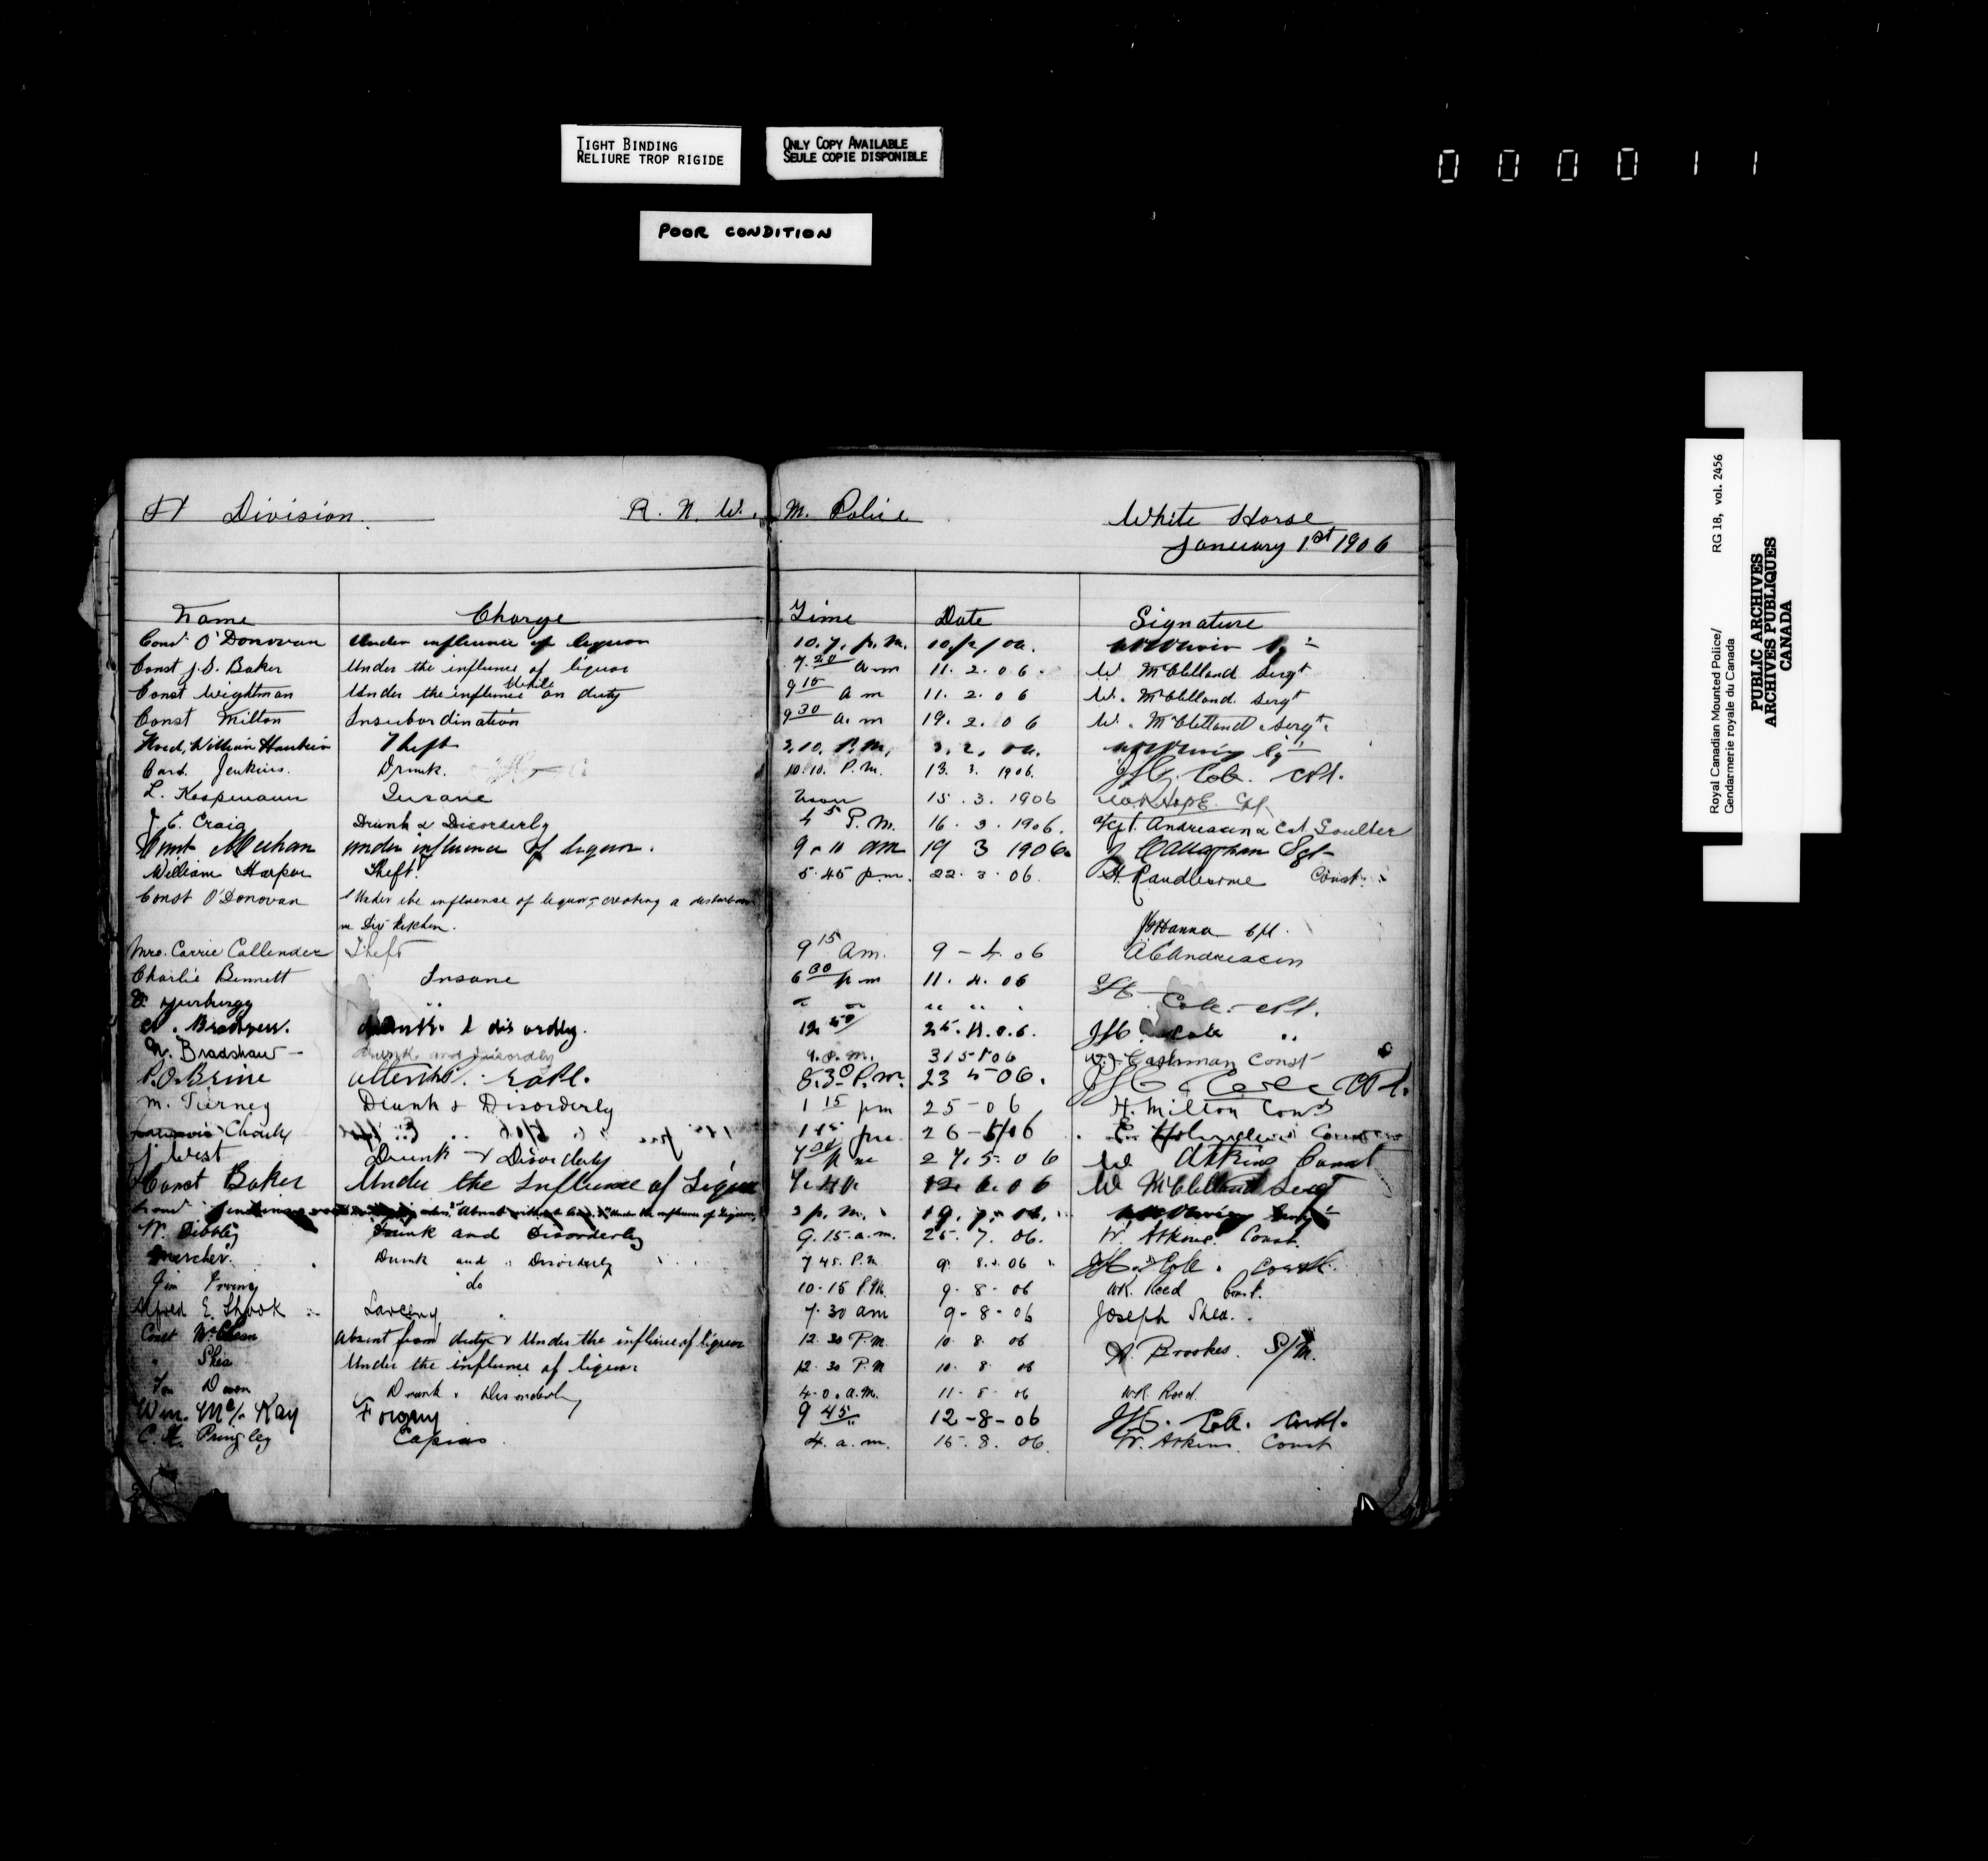 TIGHT BINDING
RELIURE TROP RIGIDE
ONLY COPY AVAILABLE
SEULE COPIE DISPONIBLE
POOR CONDITION
000011
H Division. R. N. W. M. Police White Horse
January 1st 1906
Name Charge Time Date Signature
Const O'Donovan Under influence of liquor 10.7. p.m.
Const J. S. Baker Under the influence of liquor 7.20 a m 11. 2. 06. W McClelland Sergt
Const Wightman Under the influence While on duty 9 15 a m 11. 2. 06 W. McClelland. Sergt
Const Milton Insubordination 9 30 a. m 19. 2. 06 W. McClelland. Sergt.
William Theft 2.10. P.M.
Const. Jenkins. Drunk. 10.10. P.M. 13. 3. 1906. Cole. Cpl.
L. Koopmann Insane Noon 15. 3. 1906 Cpl
J. E. Craig Drunk & Disorderly 4 5 P.M. 16. 3. 1906. a/Cpl. Andreasen & Cst Goulter
Const Meehan under influence of liquor. 9.10 am 19 3 1906. J Callaghan Sgt
William Harper Theft. 5.45 p.m. 22. 3. 06. Const.
Const O'Donovan Under the influence of liquor, creating a disturbance
in Div Kitchen. Hanna Cpl.
Mrs. Carrie Callender Theft 9 15 am. 9 - 4. 06 A C Andreasen
Charlie Bennett Insane 6 30 p m 11. 4. 06
" " " " " Cole. Cpl.
drunk & disordly. 12 50 25. 4. 0.6. Cole "
N. Bradshaw drunk and disordly 9. P.M. Const
P. O. Brine attempt. Rape. 8.30 P.M. 23 5 06. Cole Cpl.
M. Tierney Drunk & Disorderly 1 15 pm 25 - 06 H. Milton Const
Chouly 1 15 pm 26-5/06 Const
J West Drunk & Disorderly p m 27. 5. 06 W Atkins Const
Const Baker Under the Influence of Liquor 12. 6. 06 W McClelland Sergt
Const Jenkins Absent Under the influence of Liquor 2 p. m. 19. 7. 06.
W. Dibbley Drunk and Disorderly 9.15. a.m. 25. 7. 06. W. Atkins. Const.
Mercher. Drunk and Disorderly 7 45. P.M 9. 8. 06 Cole. Const.
Jim Irving do 10-15 P.M. 9-8-06 W.R. Reed Const.
Alfred E. Shook Larceny 7.30 am 9-8-06 Joseph Shea.
Const McClean Absent from duty & Under the influence of liquor 12.30 P.M. 10. 8. 06 A. Brookes. S/M.
" Shea Under the influence of liquor 12.30 P.M 10. 8. 06
Drunk & Disorderly 4-0. a.m. 11-8-06 W.R. Reed.
Wm. McKay Forgery 9 45 12-8-06 Cole. Const.
C. H. Pringley Capias 4. a. m. 15. 8. 06. W. Atkins. Const
Royal Canadian Mounted Police/ RG 18, vol. 2456
Gendarmerie royale du Canada
PUBLIC ARCHIVES
ARCHIVES PUBLIQUES
CANADA